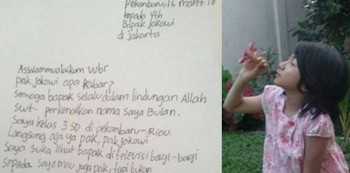 Pekanbaru, 16 maret-18
kepada Yth
Bapak Jokowi
di Jakarta
Assalammualaikum wbr
pak jokowi apa kabar?
semoga bapak selalu dalam lindungan Allah
swt- perkenalkan nama saya Bulan.
Saya kelas 3 SD di pekanbaru-Riau.
Langsung aja ya pak, pak jokowi
Saya suka lihat bapak di televisi bagi-bagi
sepeda saya mau juga pak, tapi bukan